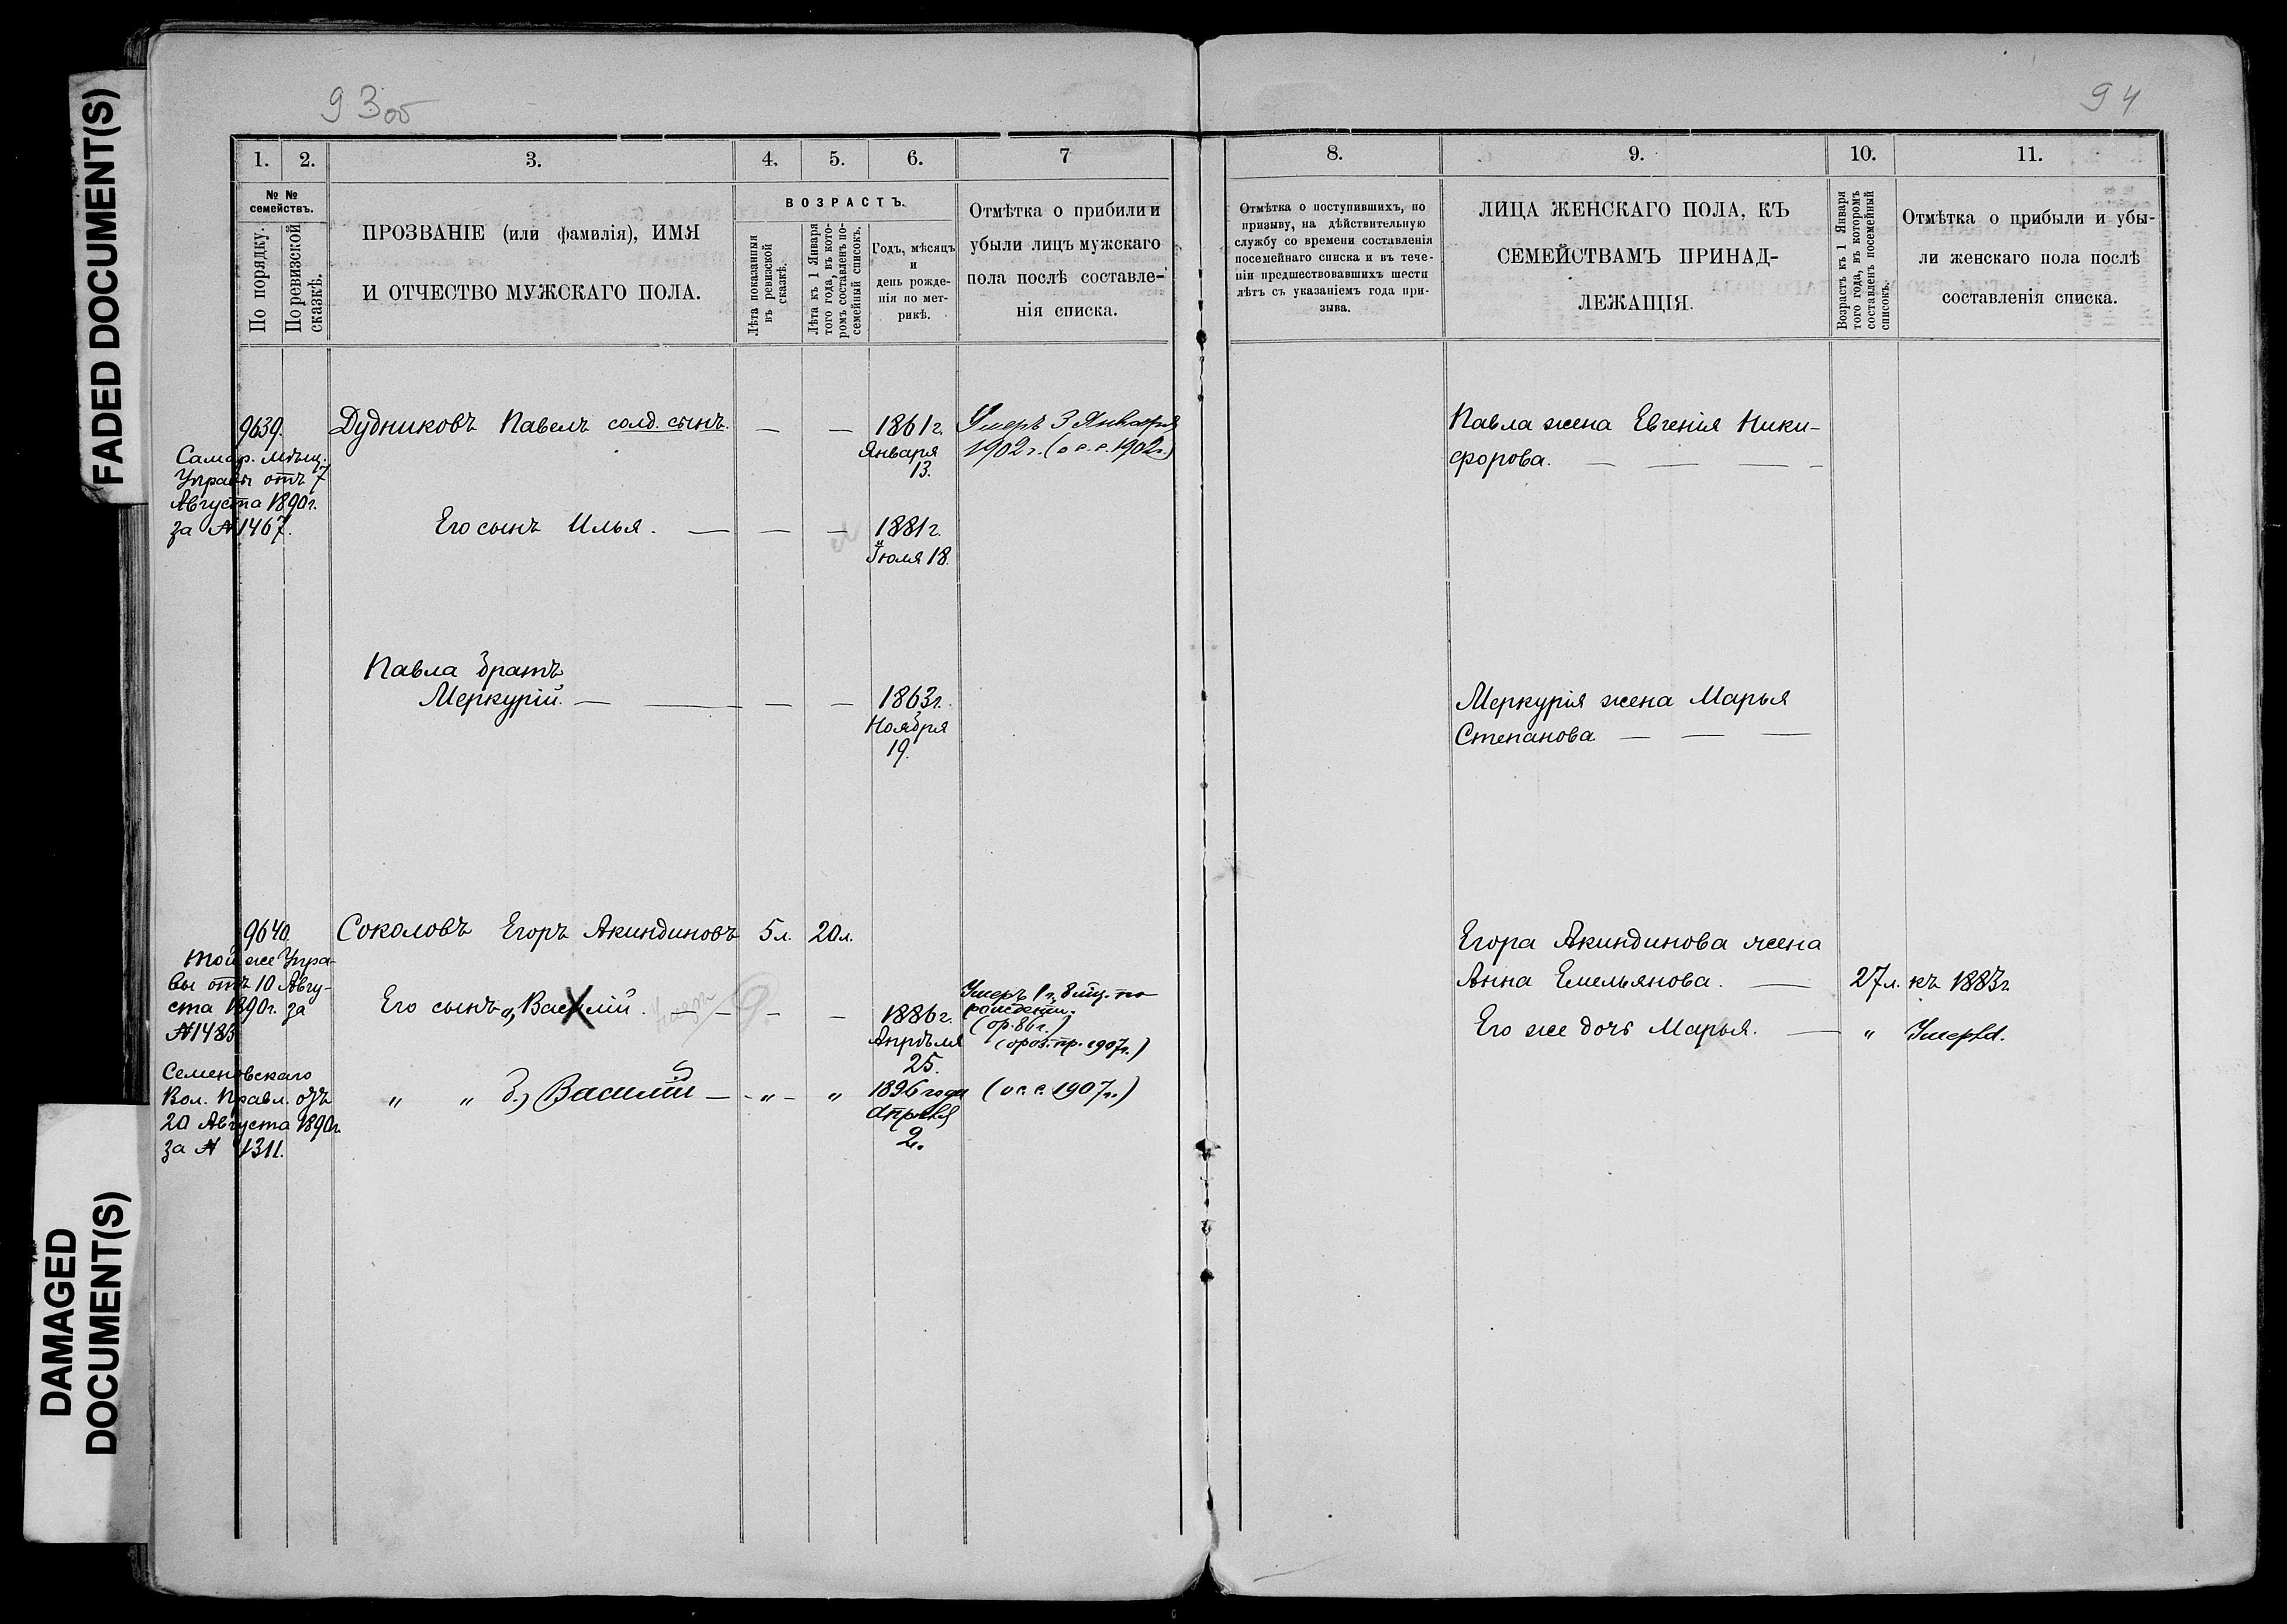 FADED DOCUMENT(S)
DAMAGED
DOCUMENT(S)
93об
1. 2. 3. 4. 5. 6. 7
№ №
семействъ.
По порядку.
По ревизской
сказкѣ.
ПРОЗВАНІЕ (или фамилія), ИМЯ
И ОТЧЕСТВО МУЖСКАГО ПОЛА.
ВОЗРАСТЪ.
Лѣта показанныя
въ ревизской
сказкѣ.
Лѣта къ 1 Января
того года, въ кото-
ромъ составленъ по-
семейный списокъ.
Годъ, мѣсяцъ
и
день рожде-
нія по мет-
рикѣ.
Отмѣтка о прибыли и
убыли лицъ мужскаго
пола послѣ составле-
нія списка.
9639. Дудниковъ Павелъ солд. сынъ. — — 1861г. Умеръ 3 Января
Января 1902г. (о с.с. 1902г.)
13.
Самар. Мѣщ.
Управы отъ 7
Августа 1890г.
за № 1467.
Его сынъ Илья. — — — 1881г.
Іюля 18.
Павла братъ
Меркурій. — — — — 1863г.
Ноября
19.
9640. Соколовъ Егоръ Акиндиновъ 5л. 20л.
той же Упра-
вы отъ 10 Авгу-
ста 1890г. за
№ 1483
Его сынъ а, Василій. — — — — 1886г.
Апрѣля
25.
Умеръ 1 г. 8 мѣс. по
рожденіи.
(ор. 86г.)
1907г.)
Семеновскаго
Вол. Правл. отъ
20 Августа 1890г.
за № 1311.
" " б, Василій — - " - " 1896 года (о с.с. 1907г.)
Апрѣля
2.
94
8. 9. 10. 11.
Отмѣтка о поступившихъ, по
призыву, на дѣйствительную
службу со времени составленія
посемейнаго списка и въ тече-
ніи предшествовавшихъ шести
лѣтъ съ указаніемъ года при-
зыва.
ЛИЦА ЖЕНСКАГО ПОЛА, КЪ
СЕМЕЙСТВАМЪ ПРИНАД-
ЛЕЖАЩІЯ.
Возрастъ къ 1 Января
того года, въ которомъ
составленъ посемейный
списокъ.
Отмѣтка о прибыли и убы-
ли женскаго пола послѣ
составленія списка.
Павла жена Евгенія Ники-
форова. — — — –
Меркурія жена Марья
Степанова — — —
Егора Акиндинова жена
Анна Емельянова. — 27л. къ 1883г.
Его же дочь Марья. — " Умерла.